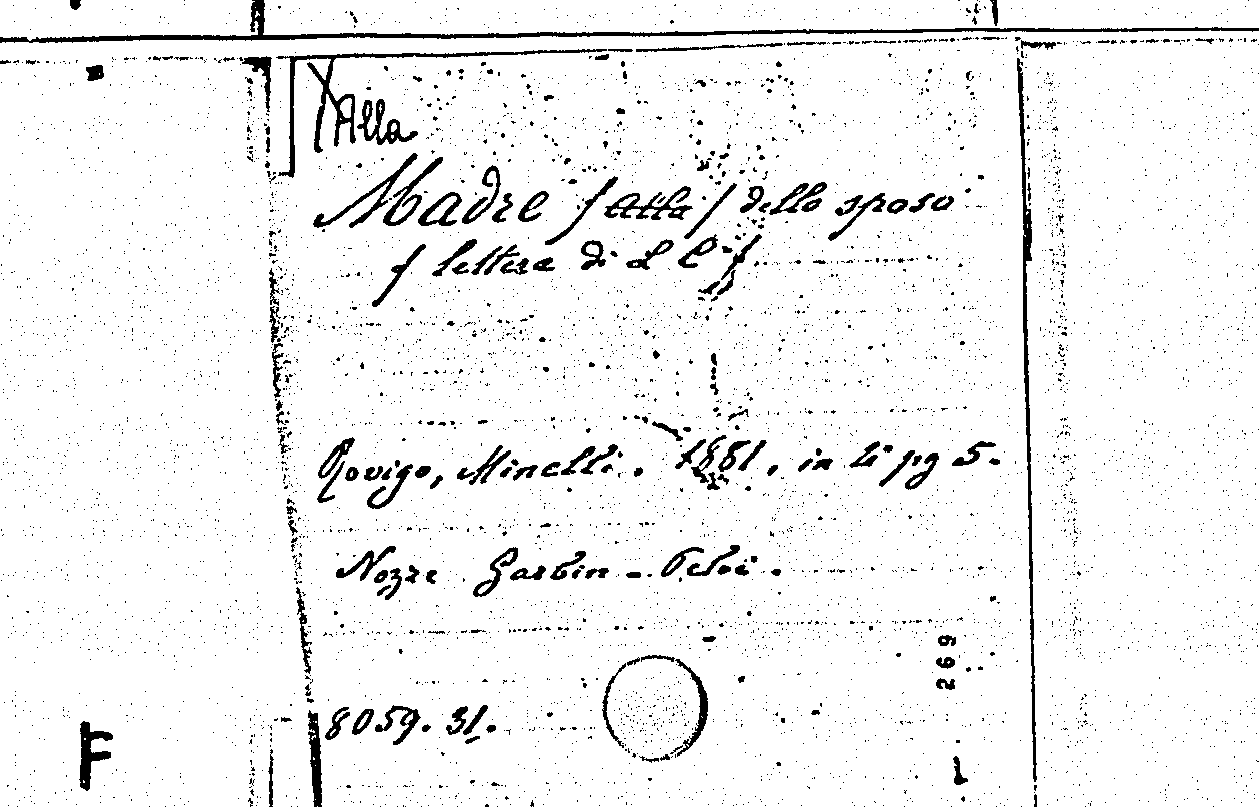 Alla
Madre (alla) dello sposo
(lettera di L C)
Rovigo, Minelli. 1881, in 4° pg 5.
Nozze Garbin -
8059.31.
269